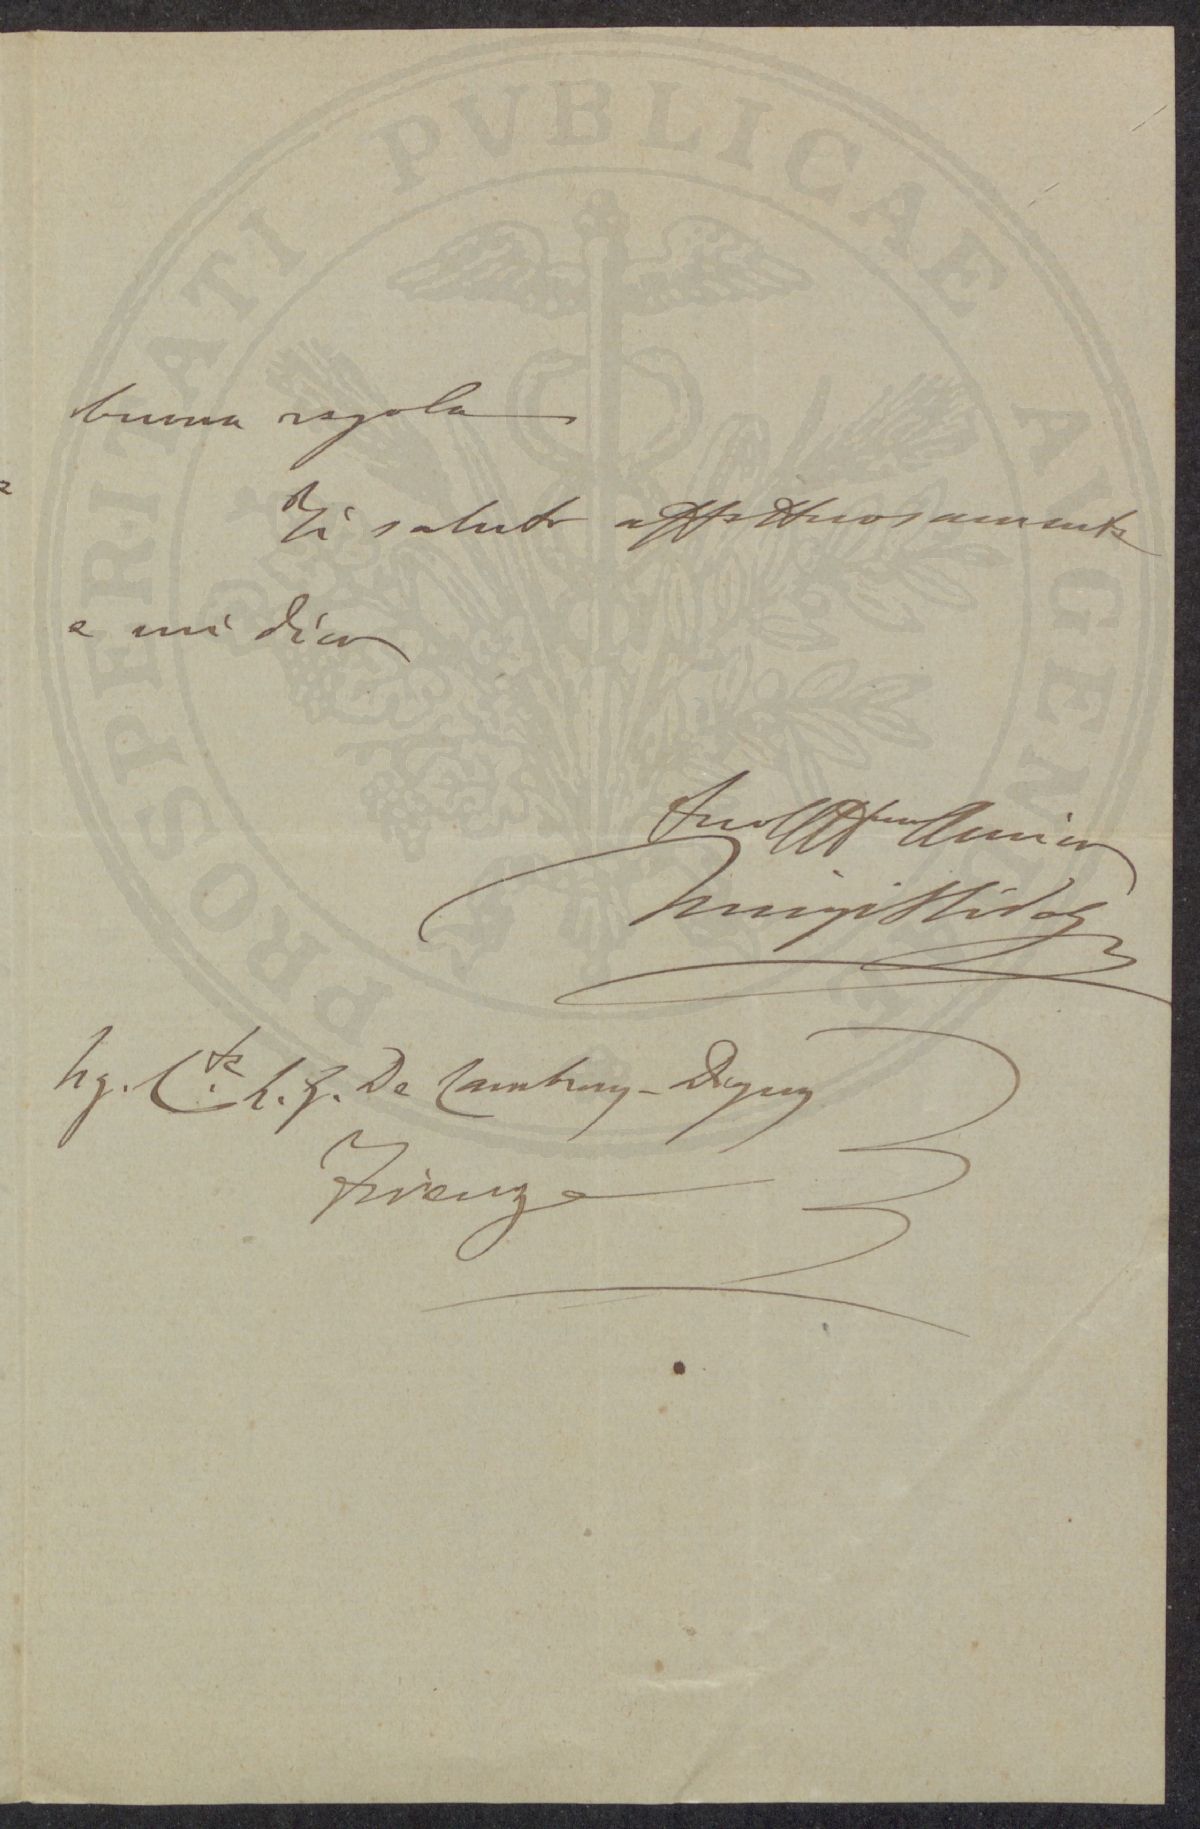 PROSPERITATI PVBLICAE AVGENDAE
buona regola
Ti saluto affettuosamente
e mi dico
Tuo Aff.mo Amico
Luigi Ridolfi
Sg. C.te L. G. De Cambray-Digny
Firenze